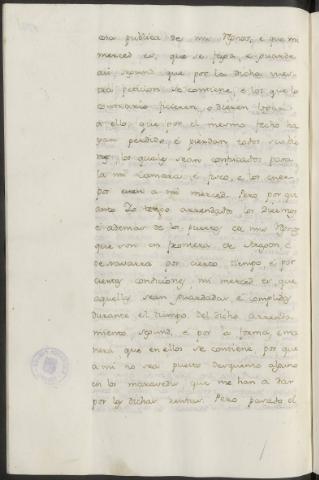 cosa publica de mis Rnos, e que mi
merced es, que se faga, e guarde
asi segund que por la dicha vues-
tra peticion se contiene, e los que lo
contrario ficieren, o dieren logar
a ello, que por el mesmo fecho ha
yan perdido, e pierdan todos sus bie
nes los quales sean confiscados para
la mi Camara, e fisco, e los cuer-
pos esten a mi merced. Pero por qu
anto Yo tengo arrendados los Diezmos
e aduanas de los puertos de mis Rnos
que son en frontera de Aragon, e
de Navarra por cierto tiempo, e por
ciertas condiciones, mi merced es que
aquellas sean guardadas, e complidas
durante el tiempo del dicho arrenda
miento segund, e por la forma, e ma
nera que en ellos se contiene, por que
a mi no sea puesto descuento alguno
en los maravedis que me han a dar
por las dichas rentas. Pero pasado el